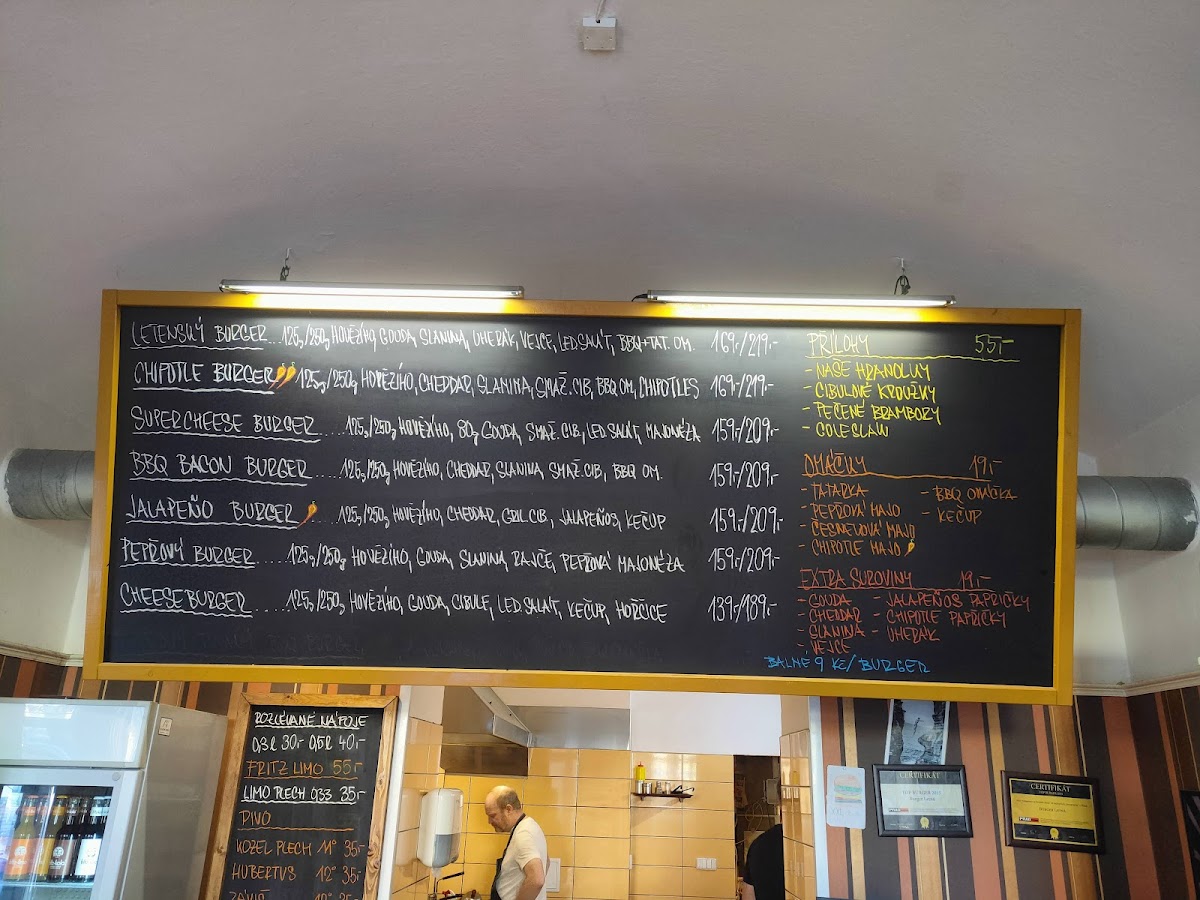 LETENSKÝ BURGER...125g/250g HOVĚZÍHO, GOUDA, SLANINA, UHERÁK, VEJCE, LED.SALÁT, BBQ+TAT. OM. 169.-/219.-
CHIPOTLE BURGER 125g/250g HOVĚZÍHO, CHEDDAR, SLANINA, SMAŽ.CIB, BBQ OM, CHIPOTLES 169.-/219.-
SUPERCHEESE BURGER.....125g/250g HOVĚZÍHO, 80g GOUDA, SMAŽ.CIB, LED.SALÁT, MAJONÉZA 159.-/209.-
BBQ BACON BURGER.....125g/250g HOVĚZÍHO, CHEDDAR, SLANINA, SMAŽ.CIB, BBQ OM. 159.-/209.-
JALAPEÑO BURGER....125g/250g HOVĚZÍHO, CHEDDAR, GRIL.CIB, JALAPEÑOS, KEČUP 159.-/209.-
PEPŘOVÝ BURGER......125g/250g HOVĚZÍHO, GOUDA, SLANINA, RAJČE, PEPŘOVÁ MAJONÉZA 159.-/209.-
CHEESEBURGER......125g/250g HOVĚZÍHO, GOUDA, CIBULE, LED.SALÁT, KEČUP, HOŘČICE 139.-/189.-
PŘÍLOHY 55.-
- NAŠE HRANOLKY
- CIBULOVÉ KROUŽKY
- PEČENÉ BRAMBORY
- COLESLAW
OMÁČKY 19.-
- TATARKA - BBQ OMÁČKA
- PEPŘOVÁ MAJO - KEČUP
- ČESNEKOVÁ MAJO
- CHIPOTLE MAJO
EXTRA SUROVINY 19.-
- GOUDA - JALAPEÑOS PAPRIČKY
- CHEDDAR - CHIPOTLE PAPRIČKY
- SLANINA - UHERÁK
- VEJCE
BALNÉ 9 KČ/BURGER
ROZLÉVANÉ NÁPOJE
0,3l 30.- 0,5l 40.-
FRITZ LIMO 55.-
LIMO PLECH 0,33 35.-
PIVO
KOZEL PLECH 11° 35.-
HUBERTUS 12° 35.-
CERTIFIKÁT
CERTIFIKÁT